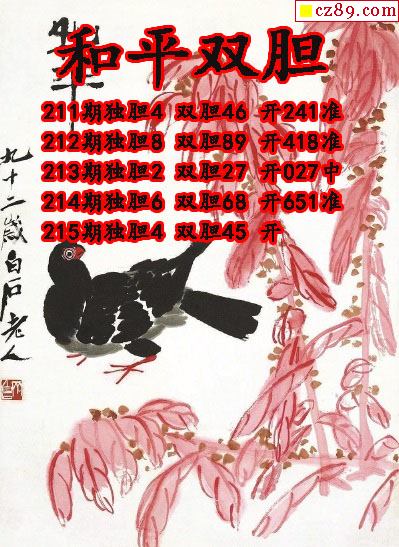 cz89.com
和平双胆
211期独胆4 双胆46 开241准
212期独胆8 双胆89 开418准
213期独胆2 双胆27 开027中
214期独胆6 双胆68 开651准
215期独胆4 双胆45 开
九十二岁白石老人